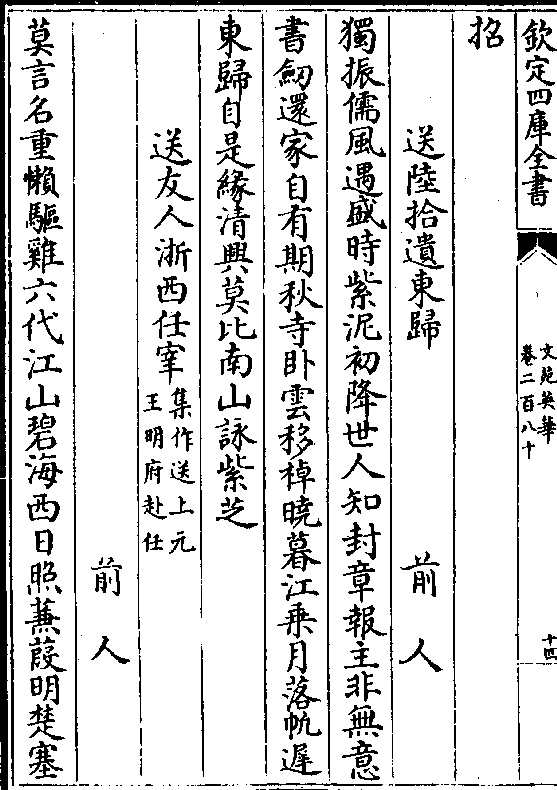 欽定四庫全書
文苑英華
卷二百八十
十四
招
送陸拾遺東歸 前人
獨振儒風遇盛時紫泥初降世人知封章報主非無意
書劒還家自有期秋寺卧雲移棹曉暮江乗月落帆遲
東歸自是緣清興莫比南山詠紫芝
送友人浙西任宰 集作送上元王明府赴任
前人
莫言名重懶驅雞六代江山碧海西日照蒹葭明楚塞